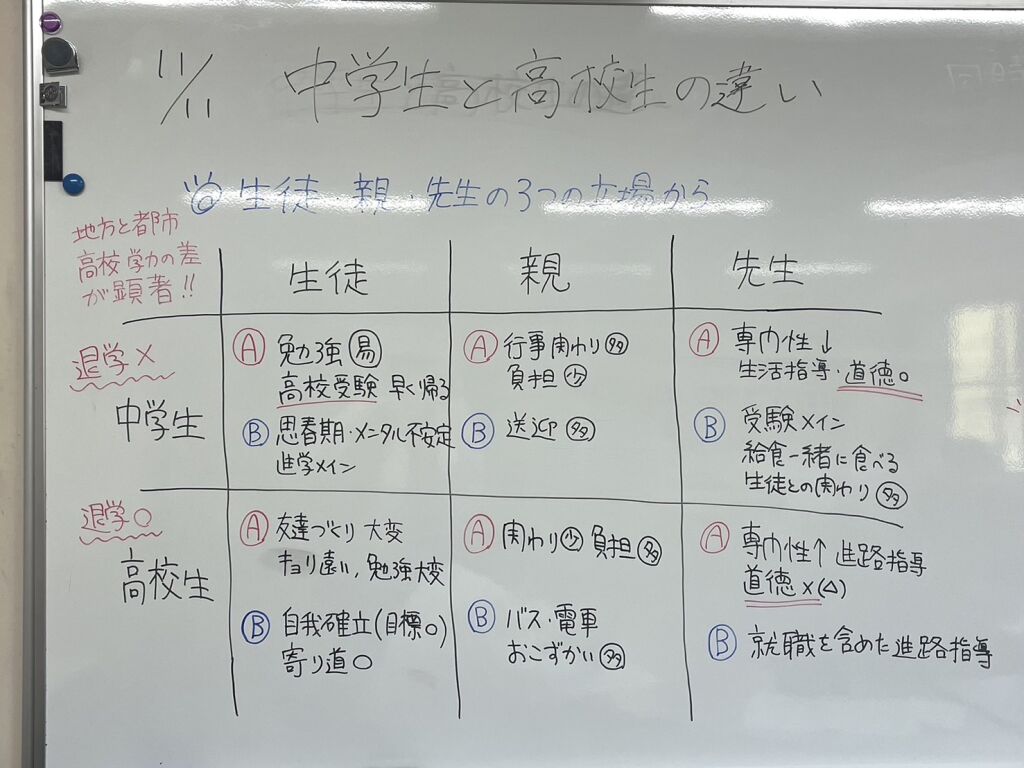 11/11 中学生と高校生の違い
◎ 生徒・親・先生の3つの立場から
地方と都市
高校学力の差
が顕著!!
生徒 親 先生
退学×
中学生
Ⓐ 勉強㊓易
高校受験 早く帰る
Ⓑ 思春期・メンタル不安定
進学メイン
Ⓐ 行事関わり 多
負担 少
Ⓑ 送迎 多
Ⓐ 専門性↓
生活指導・道徳○
Ⓑ 受験メイン
給食一緒に食べる
生徒との関わり 多
退学○
高校生
Ⓐ 友達づくり 大変
キョリ遠い、勉強大変
Ⓑ 自我確立(目標○)
寄り道○
Ⓐ 関わり 少 負担 多
Ⓑ バス・電車
おこずかい 多
Ⓐ 専門性↑ 進路指導
道徳×(△)
Ⓑ 就職を含めた進路指導